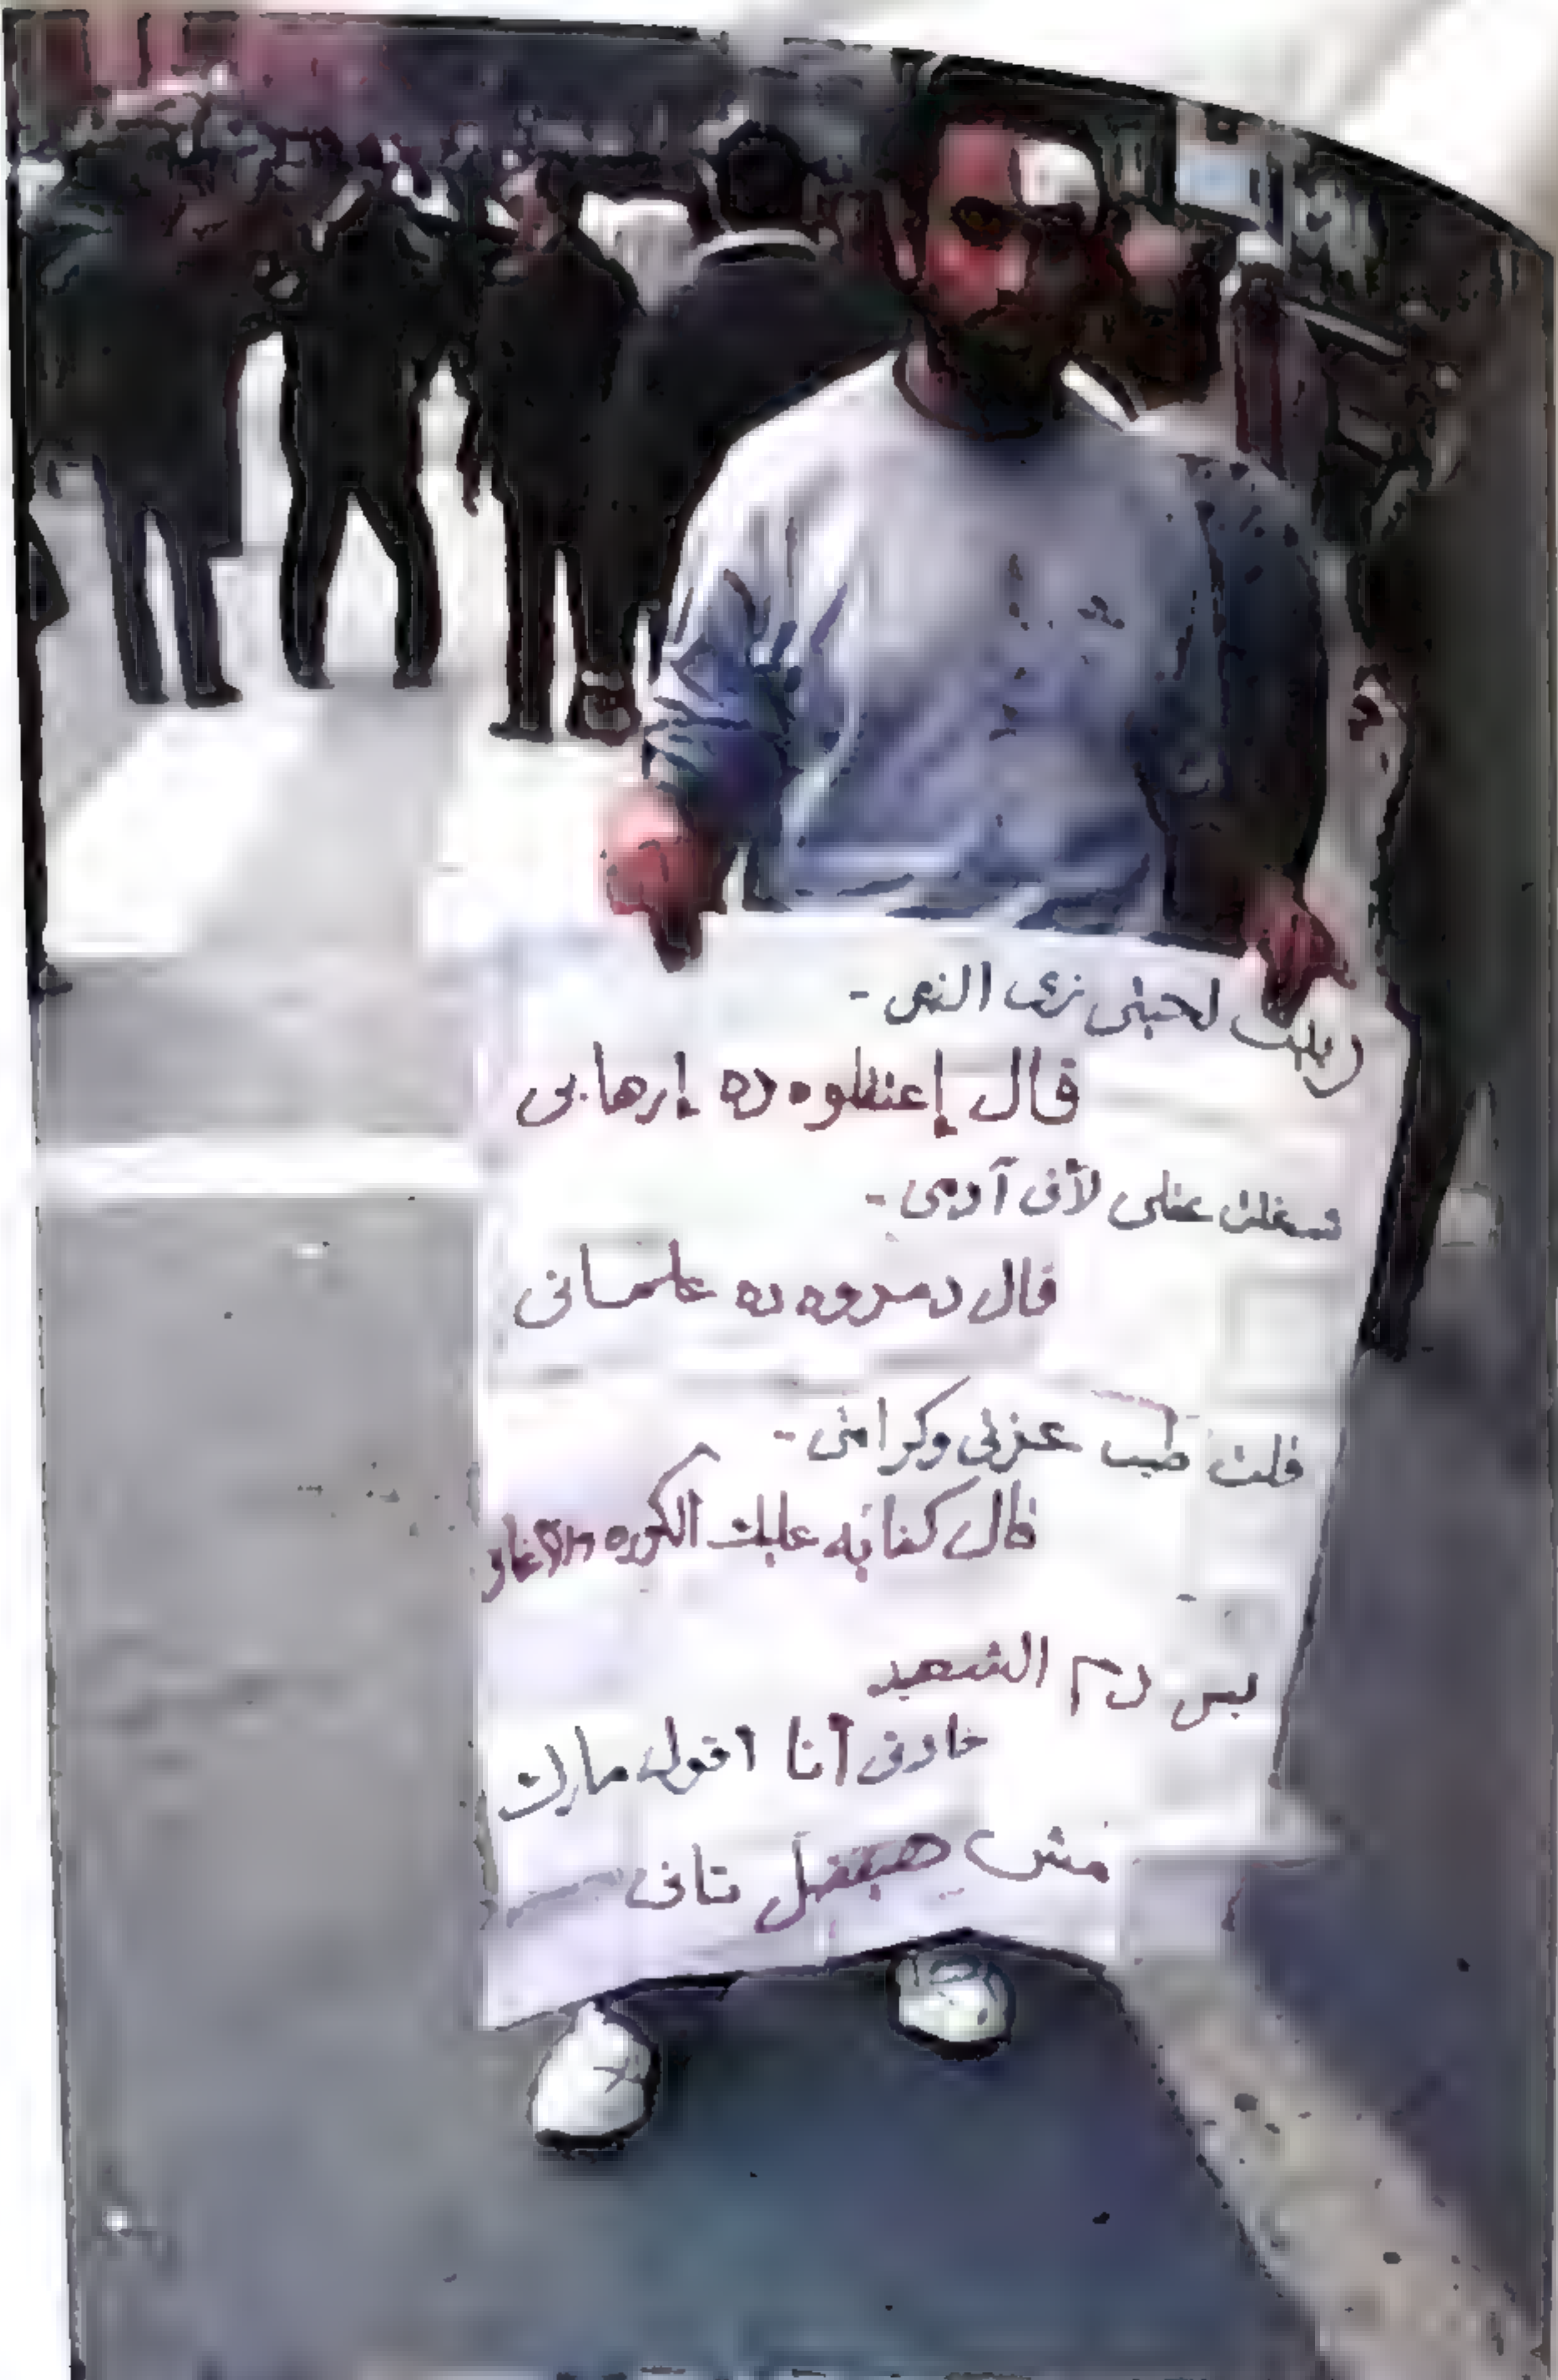 ربيت لحيتى زى النبى -
قال إعتقلوه ده إرهابى
شغلت عقلى لأنى آدمى -
قال دمروه ده علمانى
قلت طيب عزتى وكرامتى -
قال كفايه عليك الكوره والاغانى
بس دم الشهيد
خلانى أنا اقول مبارك
مش هيتفل تانى